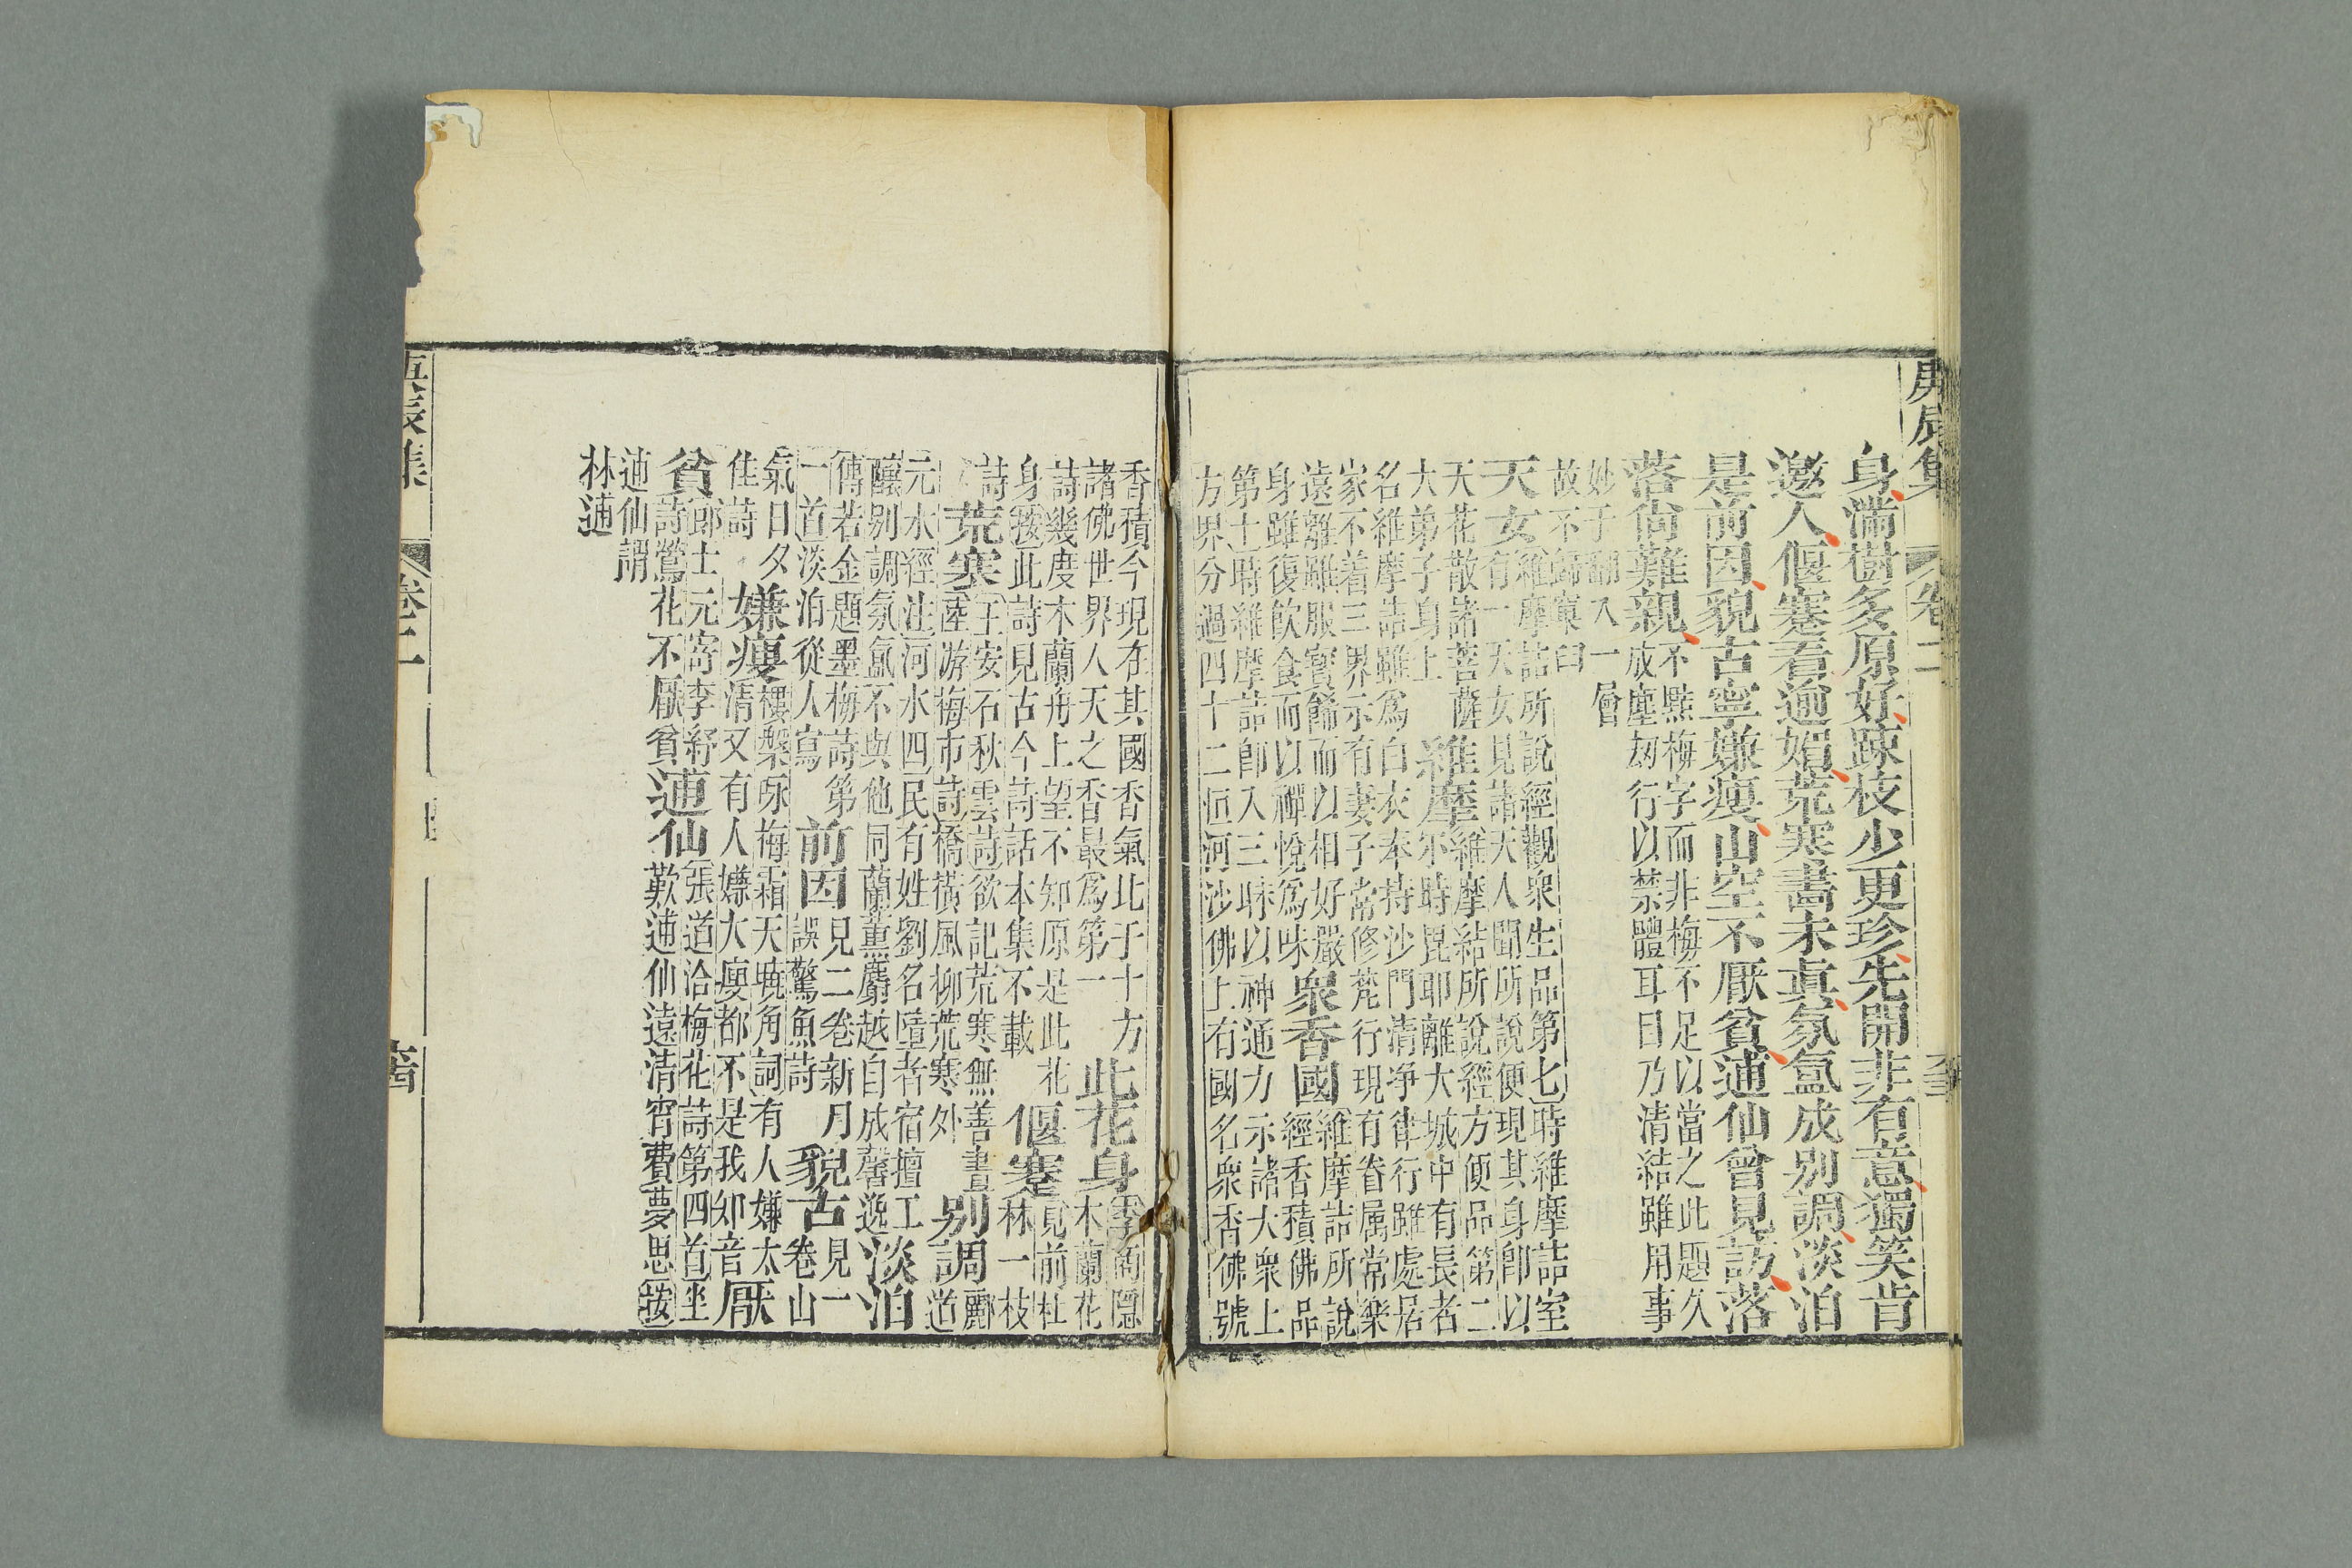 庚辰集
卷二
身滿樹多原好疎枝少更珍先開非有意獨笑肯
邀人偃蹇看逾媚荒寒畵未眞氛氲成别調淡泊
是前因貌古寧嫌瘦山空不厭貧逋仙曾見訪落
落尙難親不黏梅字而非梅不足以當之此題久
成塵刼行以禁體耳目乃清結雖用事
妙于翻入一層
故不歸窠臼
天女維摩詰所說經觀衆生品第七時維摩詰室
有一天女見諸天人聞所說便現其身卽以
天花散諸菩薩
大弟子身上
維摩維摩結所說經方便品第二
尒時毘耶離大城中有長者
名維摩詰雖爲白衣奉持沙門清凈律行雖處居
家不着三界示有妻子常修梵行現有眷属常樂
遠離雖服寳飾而以相好嚴
身雖復飲食而以禪悅爲味
衆香國維摩詰所說
經香積佛品
第十時維摩詰卽入三昧以神通力示諸大衆上
方界分過四十二恒河沙佛土有國名衆香佛號
香積今現在其國香氣此于十方
諸佛世界人天之香最爲第一
此花身李商隱
木蘭花
詩幾度木蘭舟上望不知原是此花
身按此詩見古今詩話本集不載
偃蹇
見前杜
林一枝
詩
荒寒王安石秋雲詩欲記荒寒無善畫
陸游梅市詩橋橫風柳荒寒外
别調酈道
元水經注河水四民有姓劉名墮者宿擅工
釀别調氛氲不與他同蘭薰麝越自成馨逸
淡泊
傅若金題墨梅詩第
一首淡泊從人寫
前因見二卷新月
誤驚魚詩
貌古見一
卷山
氣日夕
佳詩
嫌瘦樓槃咏梅霜天曉角詞有人嫌太
清又有人嫌大瘦都不是我知音
厭
貧郎士元寄李紓
詩鶯花不厭貧
逋仙張道洽梅花詩第四首坐
歎逋仙遠清宵費夢思按
逋仙謂
林逋
卷二